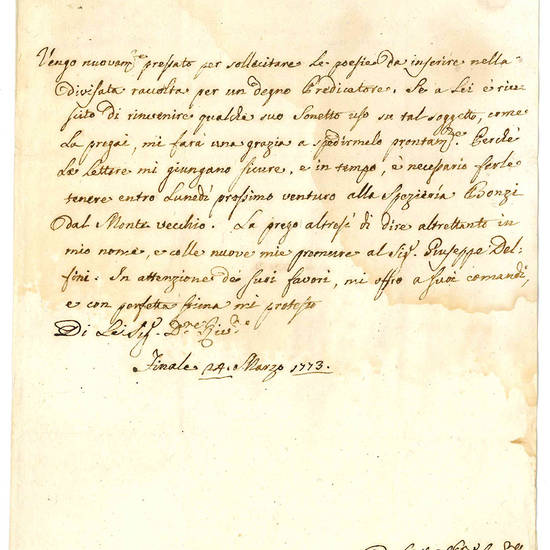 Vengo nuovam.te pressato per sollecitare le poesie da inserire nella
divisata raccolta per un degno Predicatore. Se a Lei è riu-
scito di rinvenire qualche suo Sonetto uso su tal soggetto, come
La pregai, mi farà una grazia a spedirmelo prontam.te. Perché
le Lettere mi giungano sicure, e in tempo, è necessario farle
tenere entro Lunedì prossimo venturo alla Spezieria Bonzi
dal Monte vecchio. La prego altresì di dire altrettanto in
mio nome, e colle nuove mie premure al Sig.r Giuseppe Del-
fini. In attenzione de' suoi favori, mi offro a suoi comandi,
e con perfetta stima mi protesto
Di Lei Sig.r D.ne Riv.mo
Finale 24. Marzo 1773.